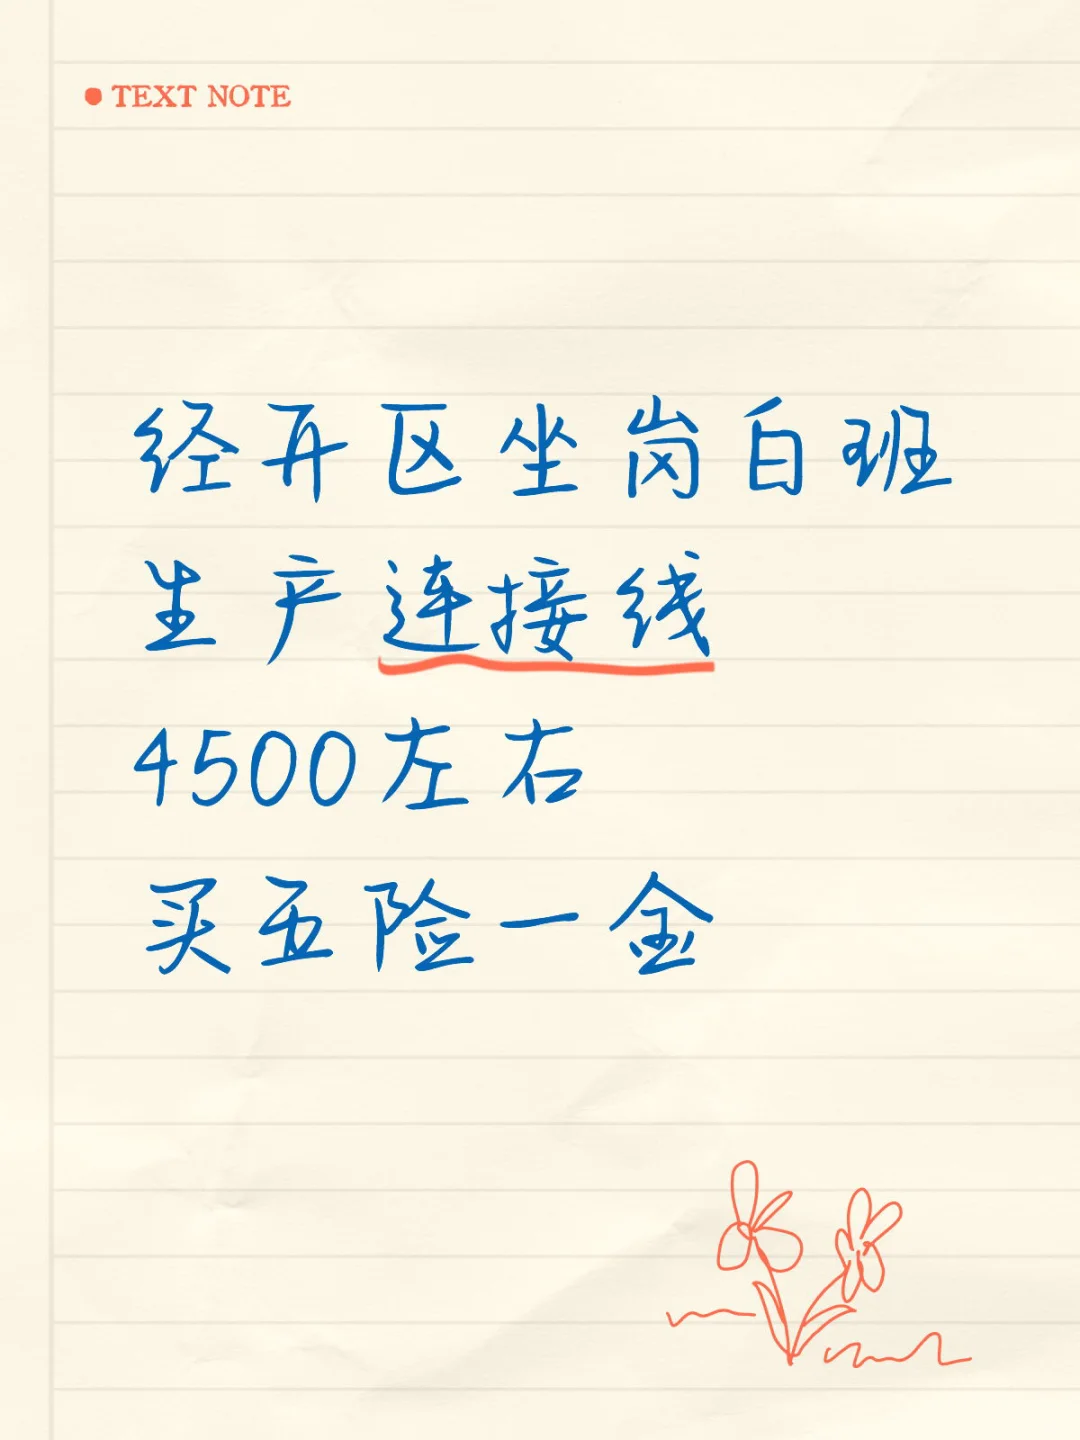 TEXT NOTE
经开区坐岗白班
生产连接线
4500左右
买五险一金